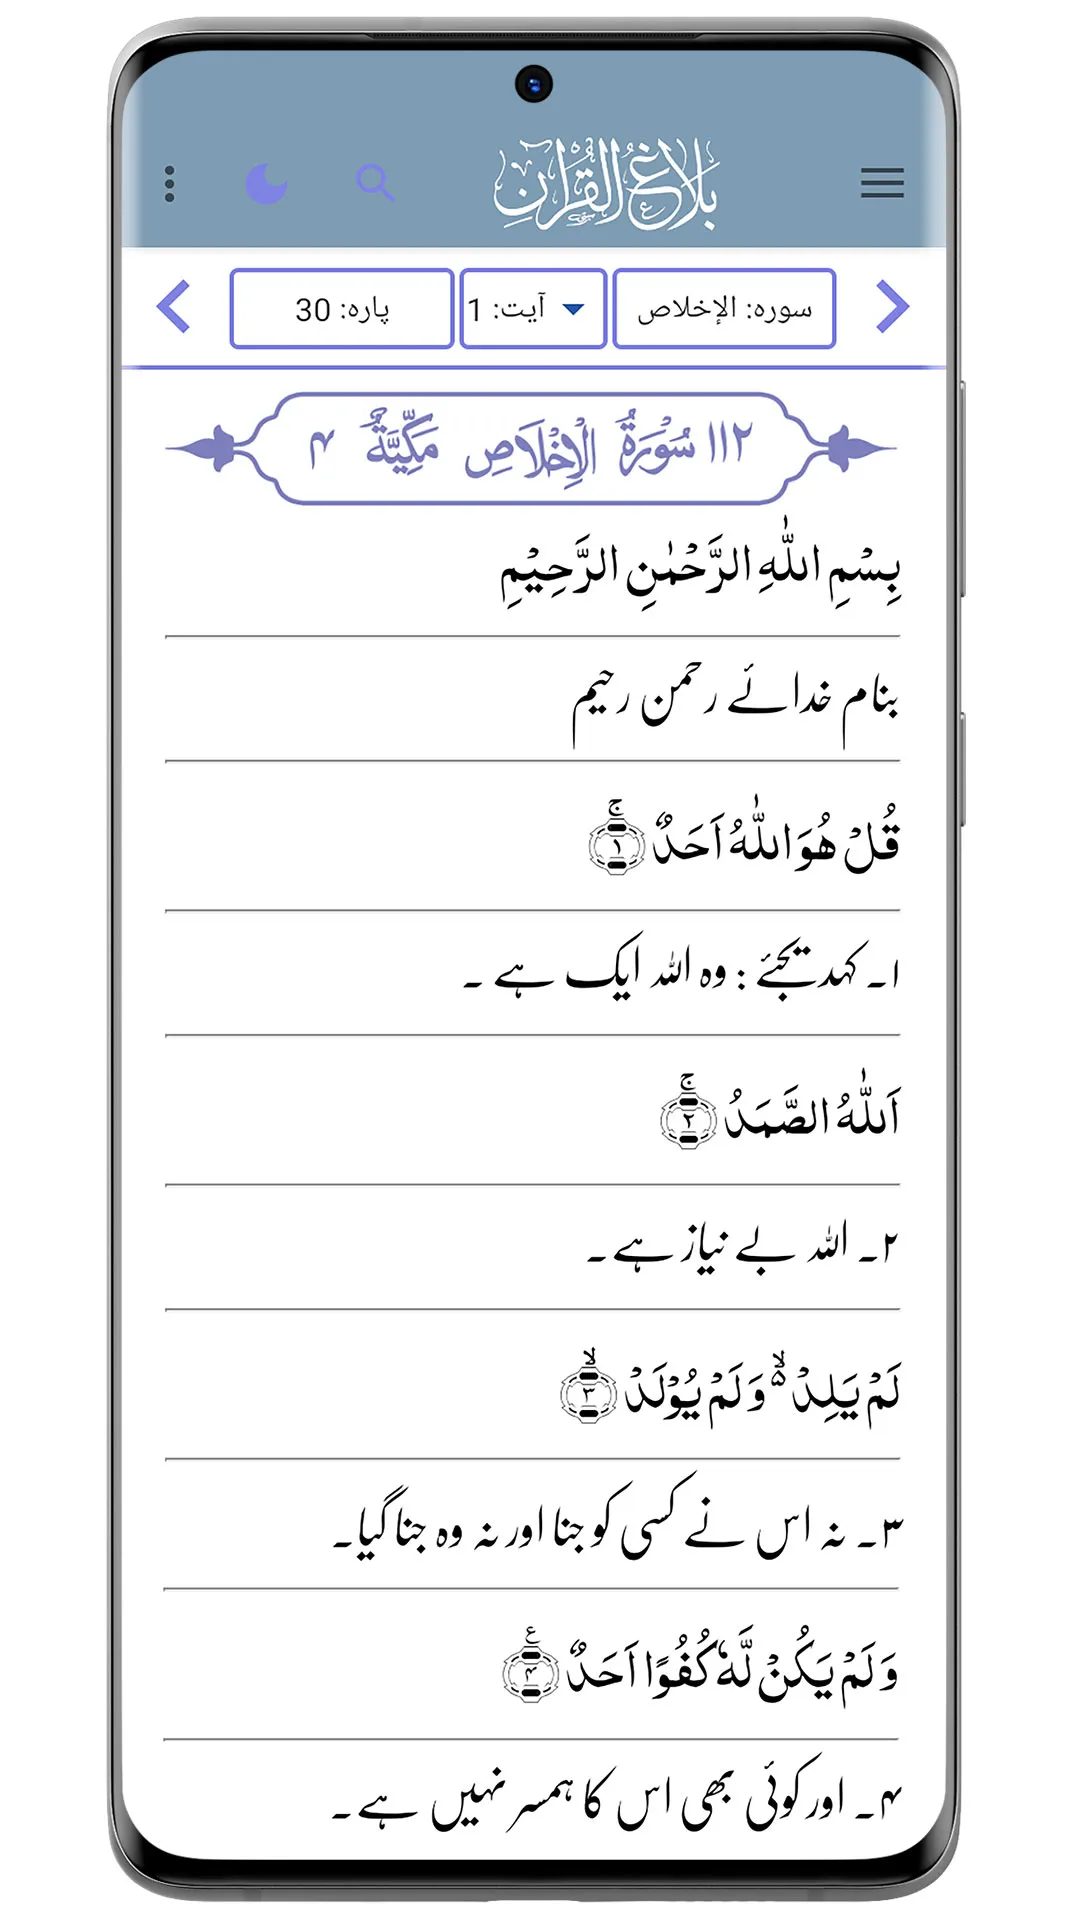 بلاغ القرآن
سورہ: الإخلاص آیت: 1 پارہ: 30
۱۱۲ سُوْرَةُ الْاِخْلَاصِ مَكِّيَّةٌ ۴
بِسْمِ اللّٰهِ الرَّحْمٰنِ الرَّحِيْمِ
بنام خدائے رحمن رحیم
قُلْ هُوَ اللّٰهُ اَحَدٌ ۚ‏ ﴿۱﴾
۱۔ کہدیجئے : وہ اللہ ایک ہے ۔
اَللّٰهُ الصَّمَدُ ۚ‏ ﴿۲﴾
۲۔ اللہ بے نیاز ہے۔
لَمْ يَلِدْ ۙ۬ وَلَمْ يُوْلَدْ ۙ‏ ﴿۳﴾
۳۔ نہ اس نے کسی کو جنا اور نہ وہ جنا گیا۔
وَلَمْ يَكُنْ لَّهٗ كُفُوًا اَحَدٌ ﴿۴﴾ ع
۴۔ اور کوئی بھی اس کا ہمسر نہیں ہے۔